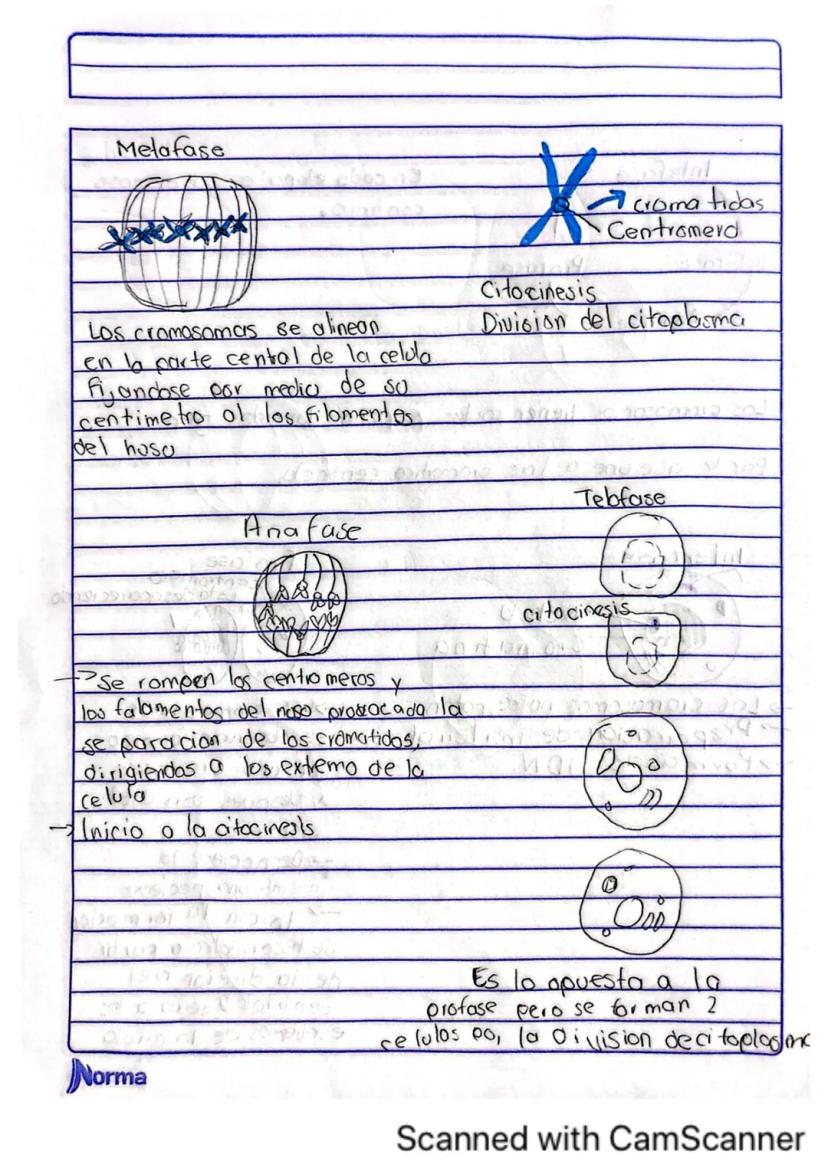 Metafase
Los cromosomas se alinean
en la parte cental de la celula
fijandose por medio de su
centimetro al los filamentos
del huso
cromatidas
Centromero
Citocinesis
Division del citoplasma
Anafase
Se rompen los centromeros y
los falamentos del huso prosocado la
separacion de los cromatidas,
dirigiendas a los extremo de la
celula
Inicio a la citocinesis
Telofase
citocinesis
Es lo opuesta a la
profase pero se forman 2
celulas la Division de citoplasma
Norma
Scanned with CamScanner